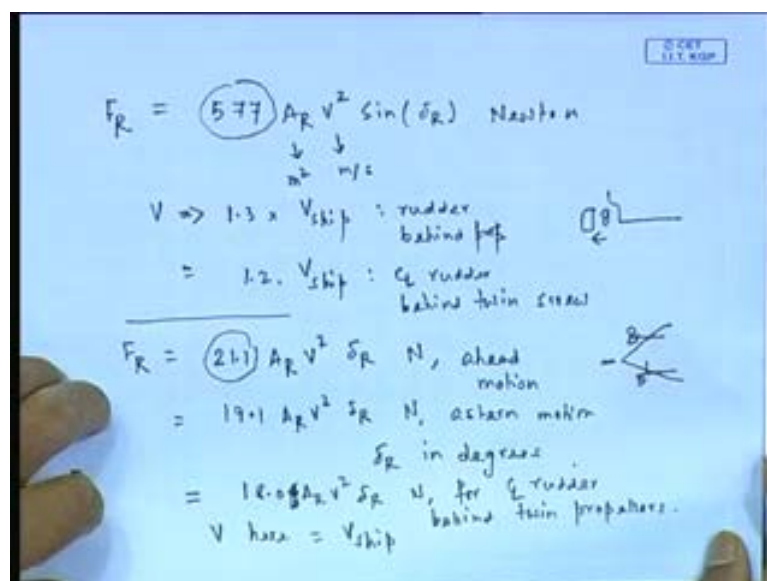 © CET
I.I.T. KGP
F_R = 577 A_R V² Sin(δ_R) Newton
m² m/s
V => 1.3 x V_ship : rudder
behind prop
= 1.2. V_ship : ℄ rudder
behind twin screw
F_R = 21.1 A_R V² δ_R N, ahead
motion
= 19.1 A_R V² δ_R N, astern motion
δ_R in degrees
= 18.0 A_R V² δ_R N, for ℄ rudder
behind twin propellers.
V here = V_ship